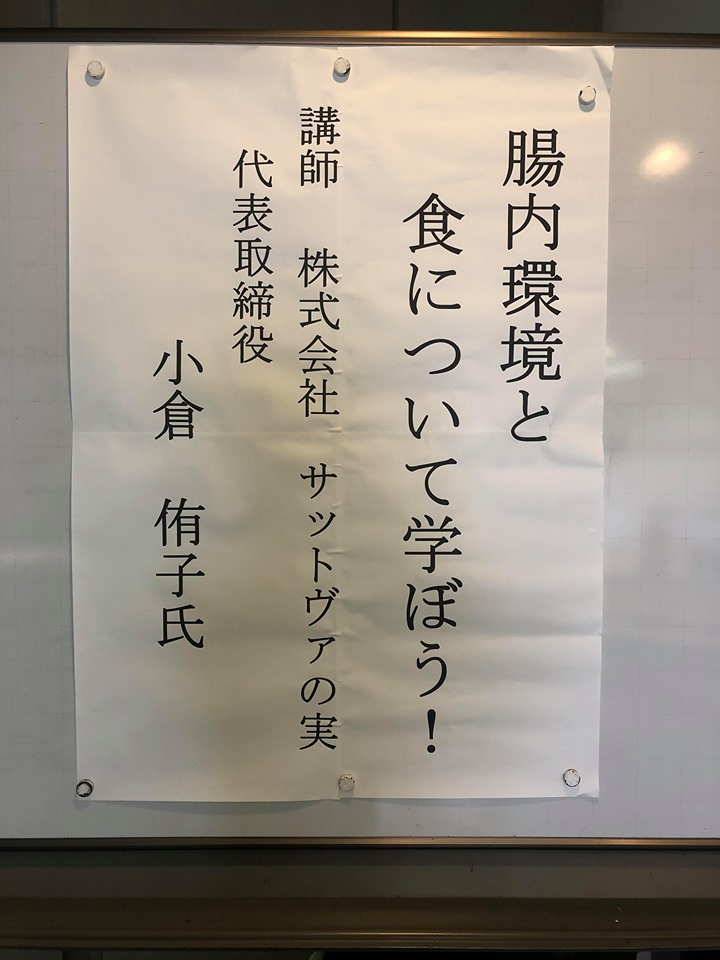 腸内環境と
食について学ぼう！
講師　株式会社　サットヴァの実
代表取締役
小倉　侑子氏